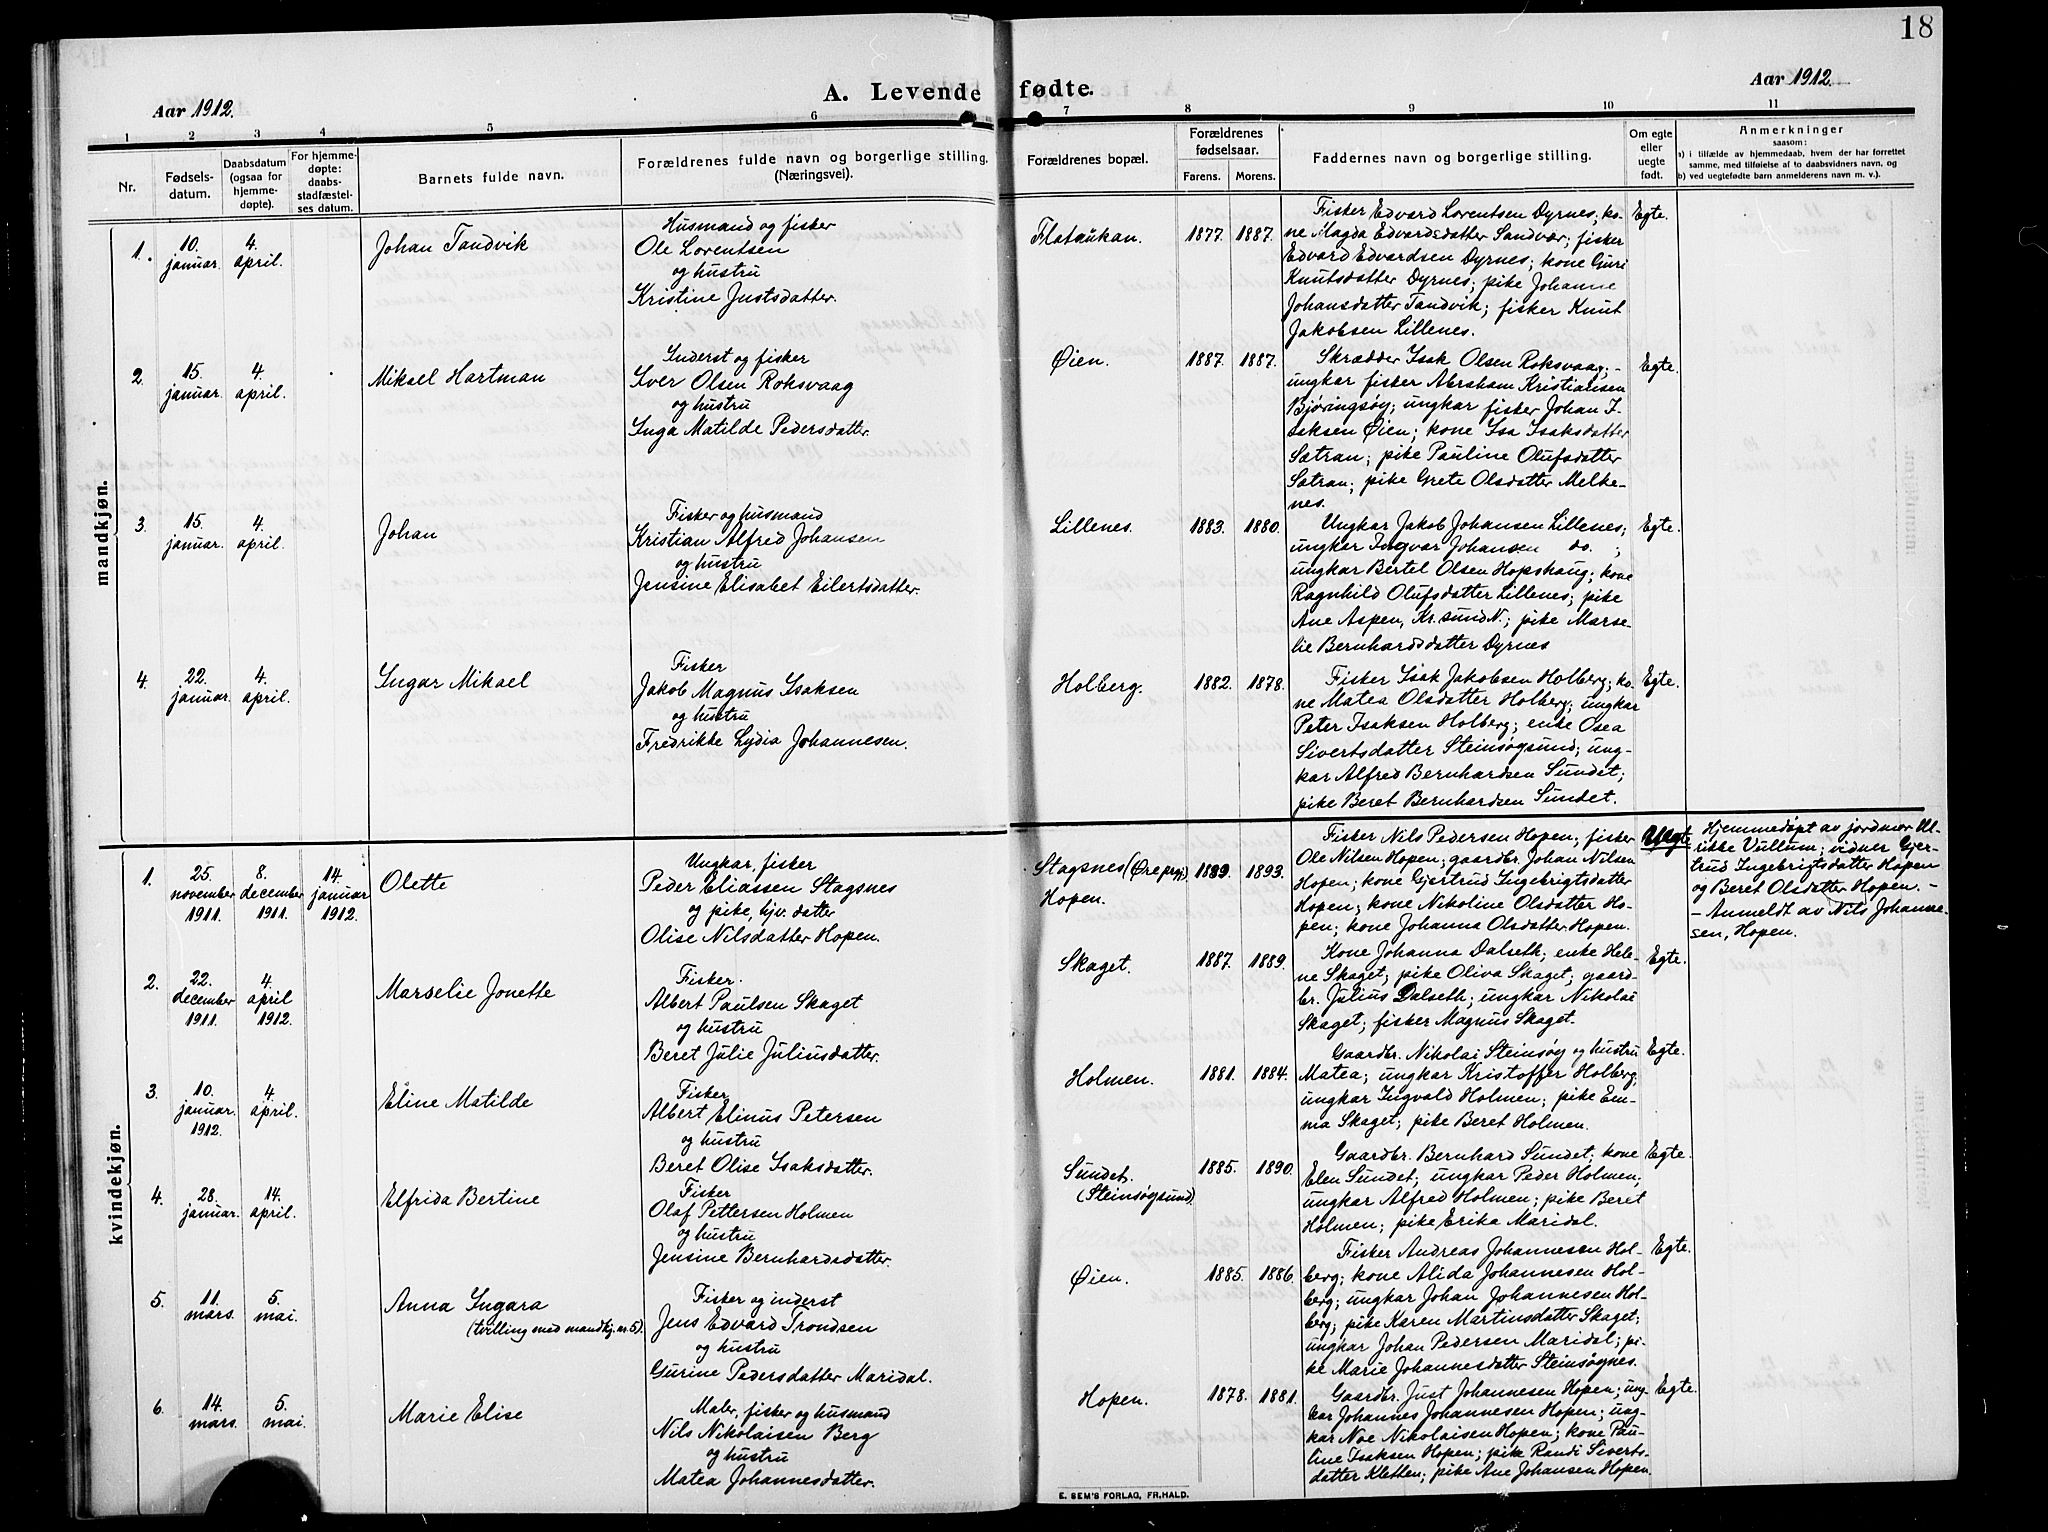 18
A. Levende fødte.
Aar 1912.
Aar 1912.
1 2 3 4 5 6 7 8 9 10 11
Nr.
Fødsels-
datum.
Daabsdatum
(ogsaa for
hjemme-
døpte).
For hjemme-
døpte:
daabs-
stadfæstel-
ses datum.
Barnets fulde navn.
Forældrenes fulde navn og borgerlige stilling.
(Næringsvei).
Forældrenes bopæl.
Forældrenes
fødselsaar.
Farens. Morens.
Faddernes navn og borgerlige stilling.
Om egte
eller
uegte
født.
Anmerkninger
saasom:
a) i tilfælde av hjemmedaab, hvem der har forrettet
samme, med tilføielse af to daabsvidners navn, og
b) ved uegtefødte barn anmelderens navn m. v.).
mandkjøn.
1.
10.
januar.
4.
april.
Johan Tandvik
Husmand og fisker
Ole Lorentsen
og hustru
Kristine Justsdatter.
Flataukan.
1877. 1887.
Fisker Edvard Lorentsen Dyrnes; ko-
ne Magda Edvardsdatter Sandvær; fisker
Edvard Edvardsen Dyrnes; kone Guri
Knutsdatter Dyrnes; pike Johanne
Johansdatter Tandvik; fisker Knut
Jakobsen Lillenes.
Egte.
2.
15.
januar.
4.
april.
Mikael Hartman
Inderst og fisker
Iver Olsen Roksvaag
og hustru
Inga Matilde Pedersdatter.
Øien.
1887. 1887.
Skrædder Isak Olsen Roksvaag; -
ungkar fisker Abraham Kristiansen
Bjøringsøy; ungkar fisker Johan I-
saksen Øien; kone Isa Isaksdatter
Sætran; pike Pauline Olufsdatter
Sætran; pike Grete Olsdatter Melke-
nes.
Egte.
3.
15.
januar.
4.
april.
Johan
Fisker og husmand
Kristian Alfred Johansen
og hustru
Jensine Elisabet Eilertsdatter.
Lillenes.
1883. 1880.
Ungkar Jakob Johansen Lillenes;
ungkar Ingvar Johansen do. ;
ungkar Bertel Olsen Hopshaug; kone
Ragnhild Olufsdatter Lillenes; pike
Ane Aspen, Kr.sund N.; pike Marse-
lie Bernhardsdatter Dyrnes
Egte.
4.
22.
januar.
4.
april.
Ingar Mikael
Fisker
Jakob Magnus Isaksen
og hustru
Fredrikke Lydia Johannesen.
Holberg.
1882. 1878.
Fisker Isak Jakobsen Holberg; ko-
ne Matea Olsdatter Holberg; ungkar
Peter Isaksen Holberg; enke Osea
Sivertsdatter Steinsøysund; ung-
kar Alfred Bernhardsen Sundet;
pike Beret Bernhardsen Sundet.
Egte.
kvindekjøn.
1.
25.
november
1911.
8.
december
1911.
14.
januar
1912.
Olette
Ungkar, fisker
Peder Eliassen Stagsnes
og pike, hjv. datter
Olise Nilsdatter Hopen.
Stagsnes (Øre prgj.)
Hopen.
1889. 1893.
Fisker Nils Pedersen Hopen; fisker
Ole Nilsen Hopen; gaardbr. Johan Nilsen
Hopen; kone Gjertrud Ingebrigtsdatter
Hopen; kone Nikoline Olsdatter Ho-
pen; kone Johanna Olsdatter Hopen.
Uegte
Hjemmedøpt av jordmor Ul-
rikke Vullum; vidner Gjer-
trud Ingebrigtsdatter Hopen
og Beret Olsdatter Hopen. -
- Anmeldt av Nils Johanne-
sen, Hopen.
2.
22.
december
1911.
4.
april
1912.
Marselie Jonette
Fisker.
Albert Paulsen Skaget
og hustru
Beret Julie Juliusdatter.
Skaget.
1887. 1889.
Kone Johanna Dalseth; enke Hele-
ne Skaget; pike Oliva Skaget; gaard-
br. Julius Dalseth; ungkar Nikolai
Skaget; fisker Magnus Skaget.
Egte.
3.
10.
januar.
1912.
4.
april.
Eline Matilde
Fisker
Albert Elinus Petersen
og hustru
Beret Olise Isaksdatter.
Holmen.
1881. 1884.
Gaardbr. Nikolai Steinsøy og hustru
Matea; ungkar Kristoffer Holberg;
ungkar Ingvald Holmen; pike Em-
ma Skaget; pike Beret Holmen.
Egte.
4.
28.
januar.
14.
april.
Elfrida Bertine
Fisker
Olaf Pettersen Holmen
og hustru
Jensine Bernhardsdatter.
Sundet.
(Steinsøysund).
1885. 1890.
Gaardbr. Bernhard Sundet; kone
Elen Sundet; ungkar Peder Holmen;
ungkar Alfred Holmen; pike Beret
Holmen; pike Erika Maridal.
Egte.
5.
11.
mars.
5.
mai.
Anna Ingara
(tvilling med mandkj. nr. 5).
Fisker og inderst
Jens Edvard Trondsen
og hustru
Gurine Pedersdatter Maridal.
Øien.
1885. 1886.
Fisker Andreas Johannesen Hol-
berg; kone Alida Johannesen Hol-
berg; ungkar Johan Johannesen Hol-
berg; pike Karen Martinsdatter Skaget;
ungkar Johan Pedersen Maridal; pi-
ke Marie Johannesdatter Steinsøynes.
Egte.
6.
14.
mars.
5.
mai.
Marie Elise
Maler, fisker og husmand
Nils Nikolaisen Berg
og hustru
Matea Johannesdatter.
Hopen.
1878. 1881.
Gaardbr. Just Johannesen Hopen; ung-
kar Johannes Johannesen Hopen; ung-
kar Noe Nikolaisen Hopen; kone Pau-
line Isaksen Hopen; pike Randi Siverts-
datter Kletten; pike Ane Johansen Hopen.
Egte.
E. SEM'S FORLAG, FR.HALD.